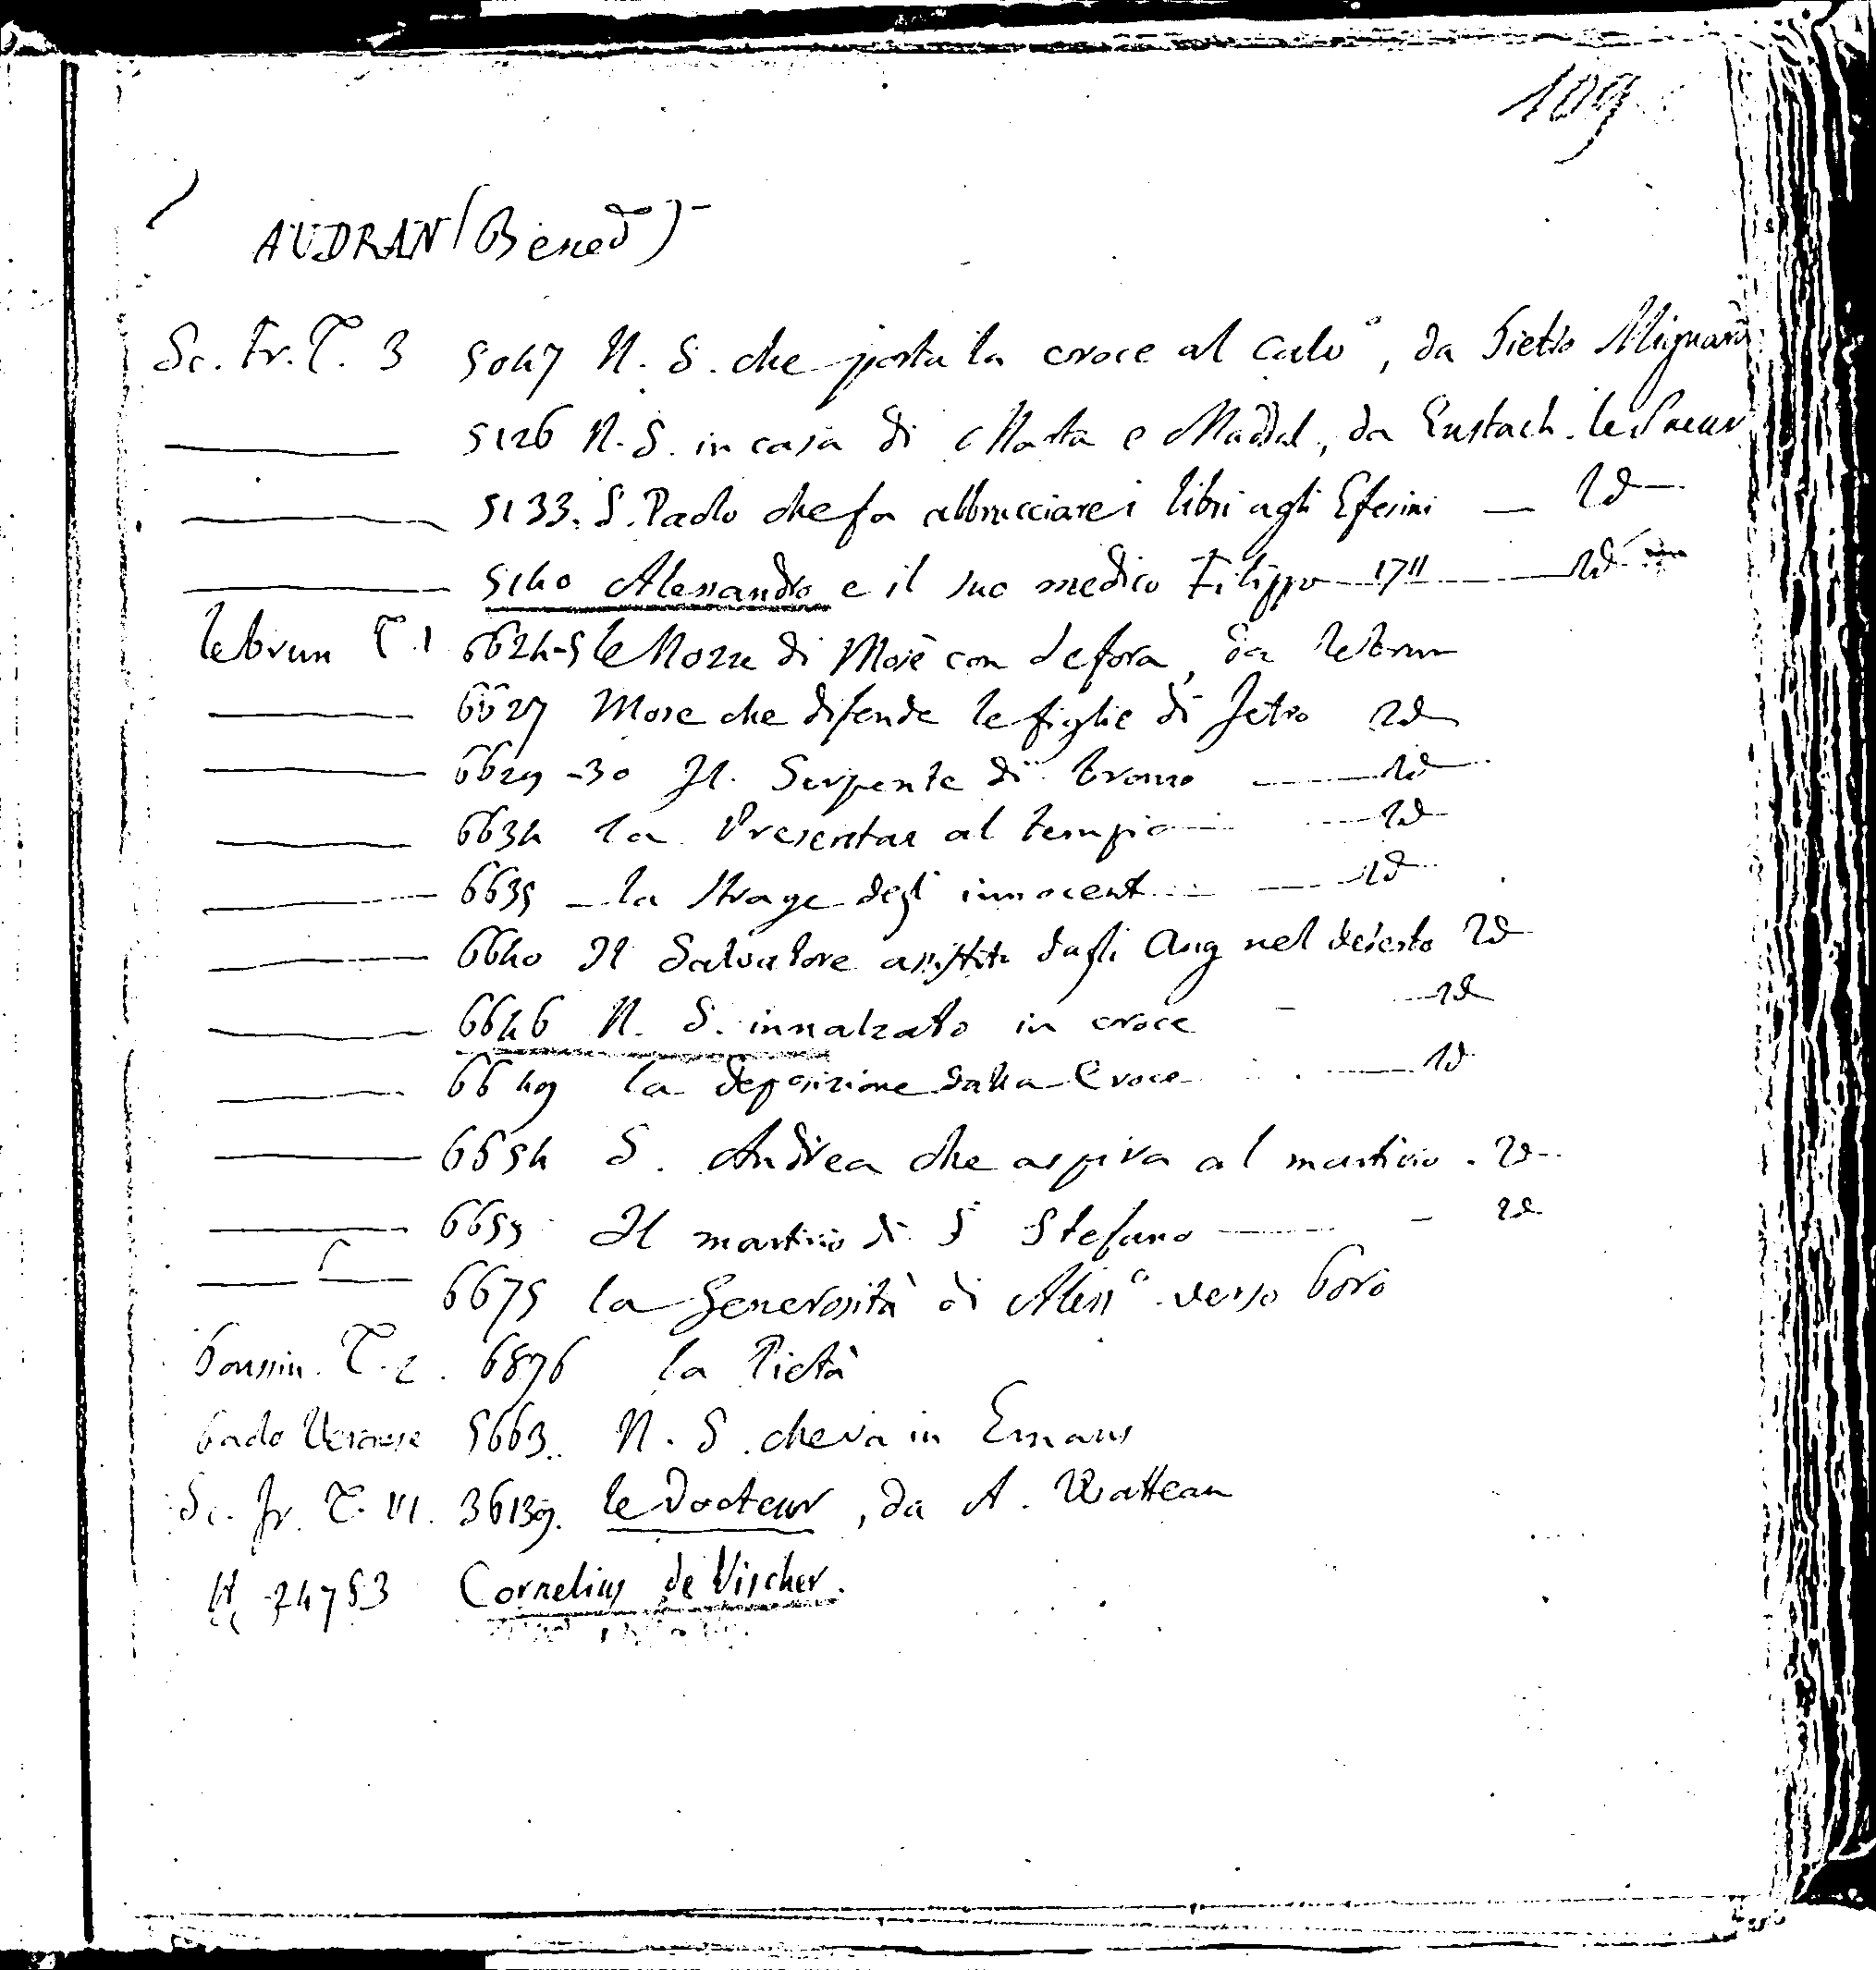 109
AUDRAN (Bened)
Sc. Fr. T. 3 5047 N. S. che porta la croce al Calvº, da Pietro Mignard
5126 N. S. in casa di Marta e Maddal, da Eustach. le Sueur
5133. S. Paolo che fa abbrucciare i libri agli Efesini — Id
5140 Alessandro e il suo medico Filippo 1711 — Id
Lebrun T. 1 6624-5 le Nozze di Mosè con Sefora, da Lebrun
6627 Mose che difende le figlie di Jetro Id
6629-30 Il Serpente di bronzo — Id
6634 la Presentaz al tempio — Id
6635 — la Strage degli innocent — Id
6640 Il Salvatore assistito dagli Ang nel deserto Id
6646 N. S. innalzato in croce - Id
6649 la deposizione dalla Croce — Id
6654 S. Andrea che aspira al martirio. Id
6655 Il martirio di S Stefano — Id
6675 la Generosità di Alessº verso Poro
Poussin. T. 2. 6876 la Pietà
Paolo Veronese 5663. N. S. che va in Emaus
Sc. fr. T. VI. 36139. le Docteur, da A. Watteau
24753 Cornelius de Vischer.